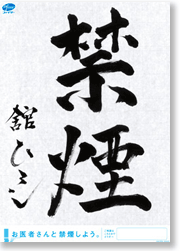 禁煙
舘ひろし
お医者さんと禁煙しよう。